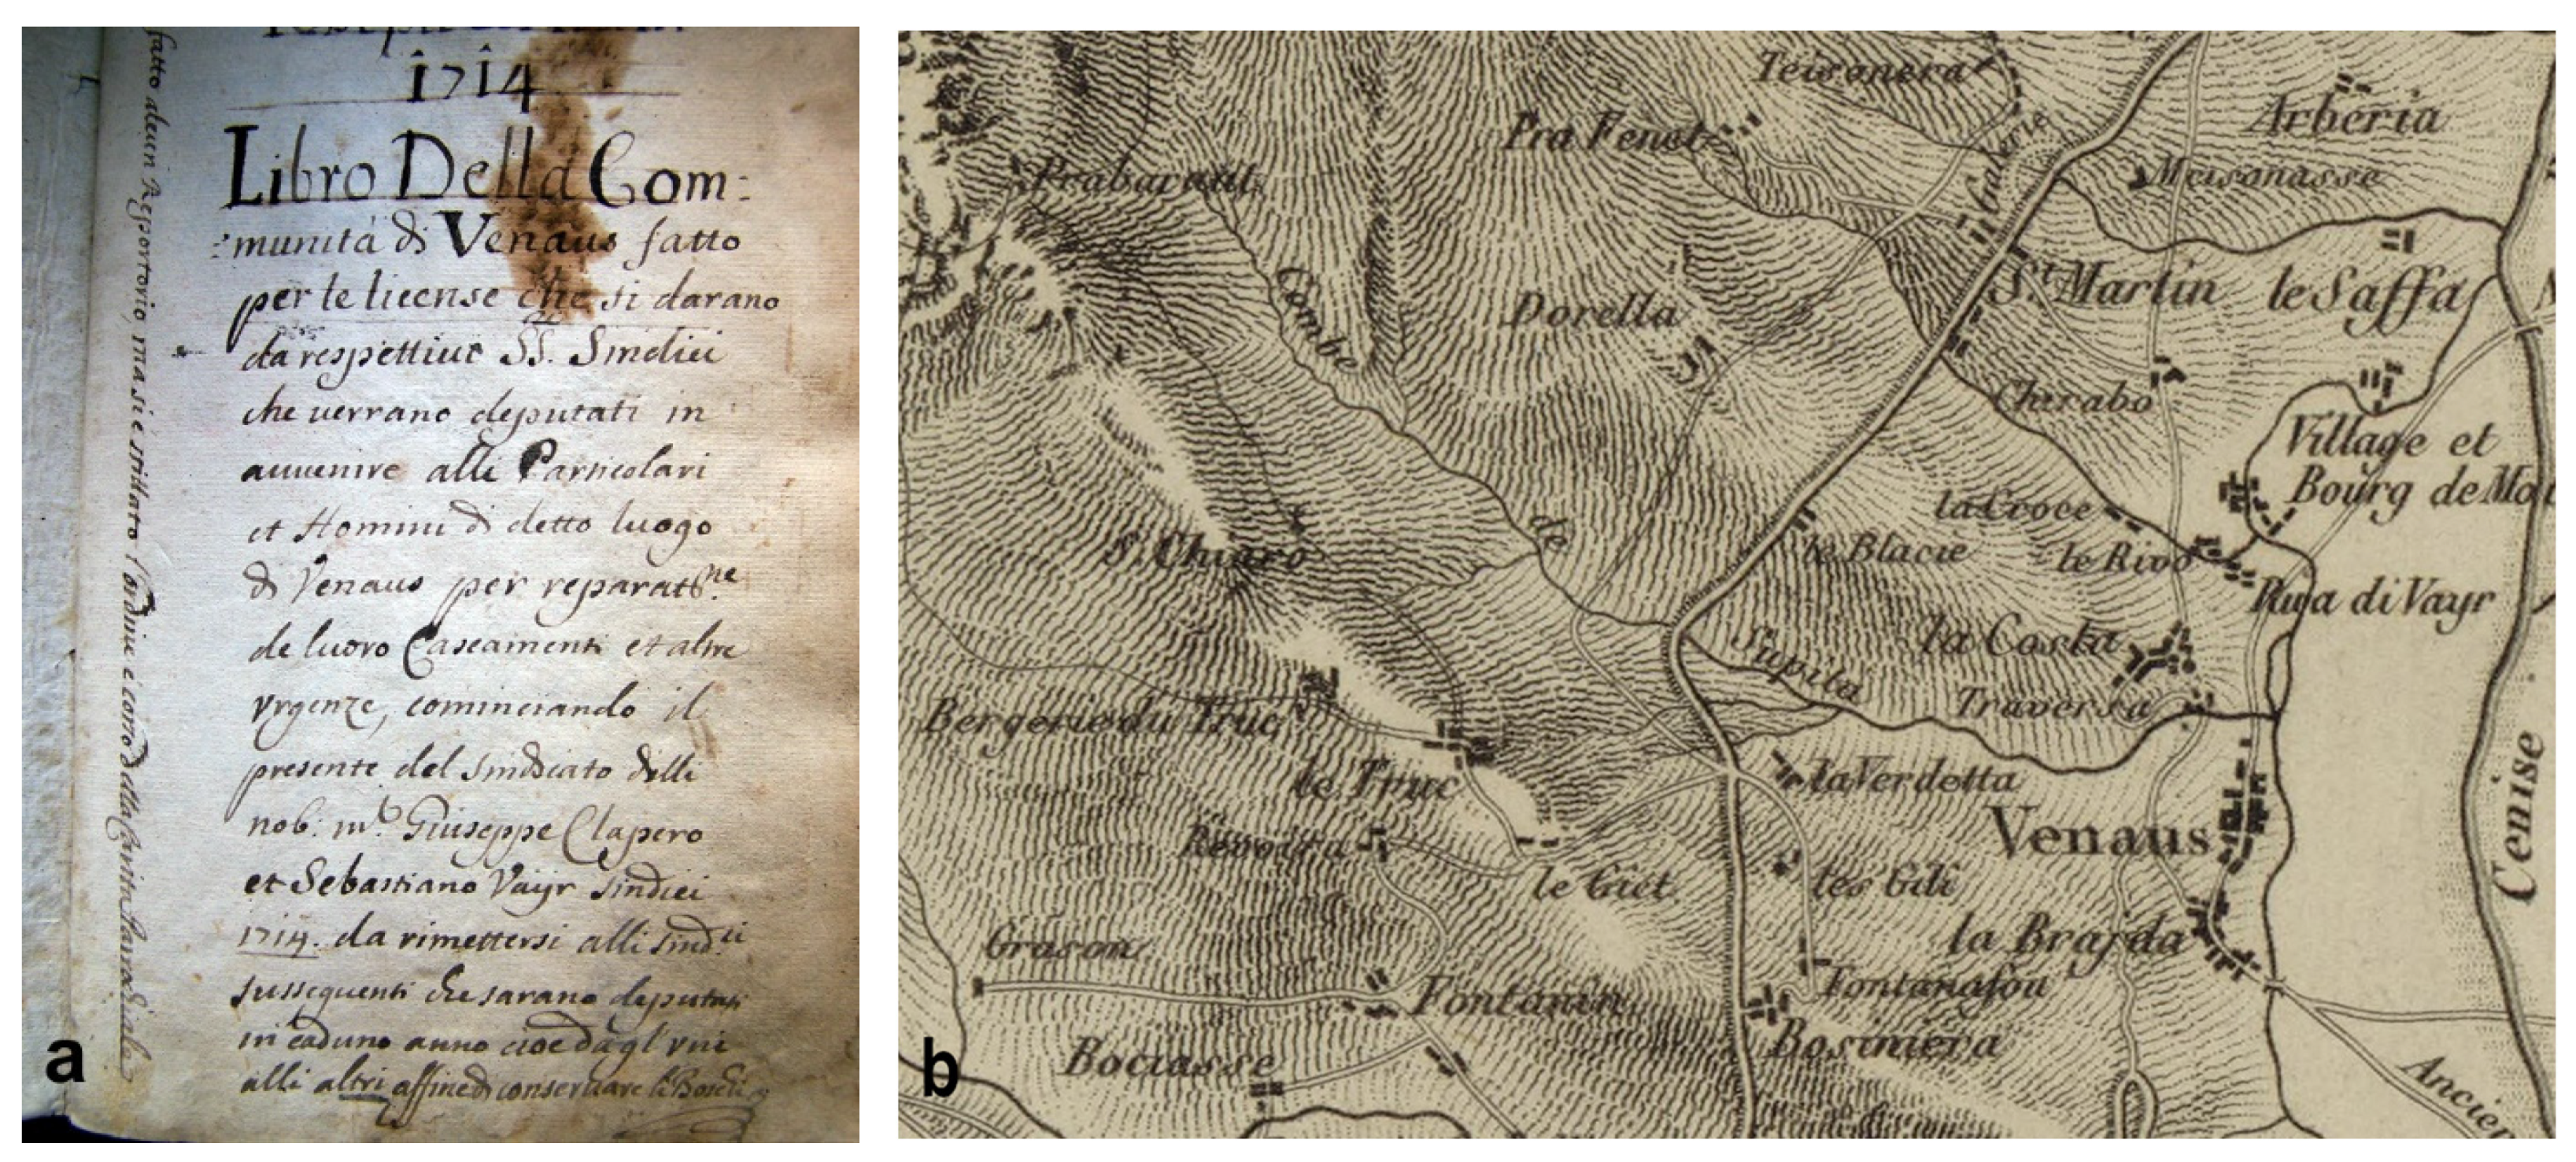 1714
Libro Della Com:
:munità di Venaus fatto
per le license che si darano
da respettiue SS. Sindici
che uerrano deputati in
auuenire alli Particolari
et Homini di detto luogo
di Venaus per reparat.ne
de luoro Caseamenti et altre
vrgenze, cominciando il
presente del sindicato delli
nob: m.o Giuseppe Clapero
et Sebastiano Vayr sindici
1714. da rimettersi alli sind.ci
susseguenti che sarano deputati
in caduno anno cioe dagl vni
alli altri affine di conseruare li Boschi
fatto alcun Repportorio, ma si è stillato l'ordine e
a
Teisonera
Arberia
Pra Fenet
Galerie
Meisonasse
Prabaraul
St. Martin
le Saffa
Combe
Dorella
Chirabo
Village et
Bourg de Mol
la Croce
S. Chiaro
de
le Blacie
le Rivo
Rua di Vayr
Supita
la Costa
Traversa
Bergerie du Truc
le Truc
la Verdetta
Venaus
Cenise
le Giet
les Gili
la Brajda
Grason
Fontanin
Fontanafou
Bociasse
Bosiniera
Ancien
b